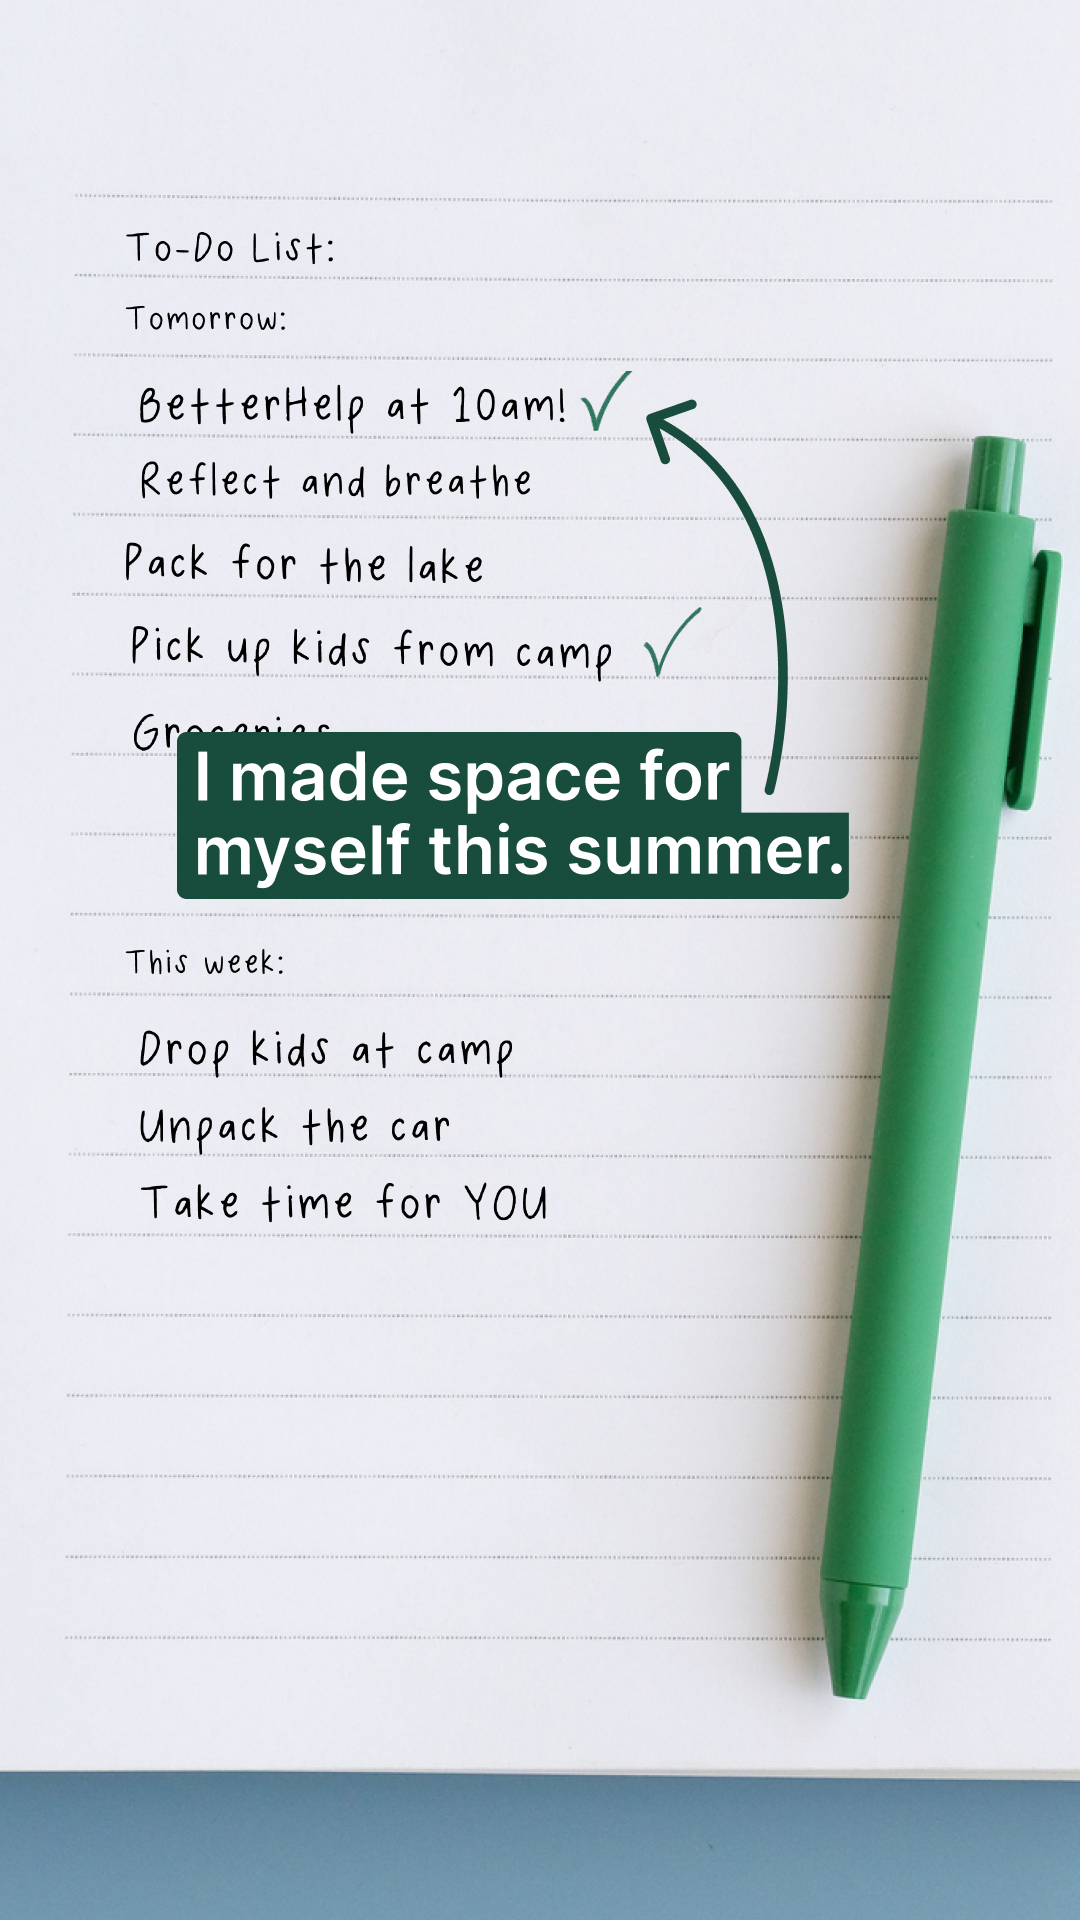 To-Do List:
Tomorrow:
BetterHelp at 10am!
Reflect and breathe
Pack for the lake
Pick up kids from camp
Groceries
I made space for
myself this summer.
This week:
Drop kids at camp
Unpack the car
Take time for YOU